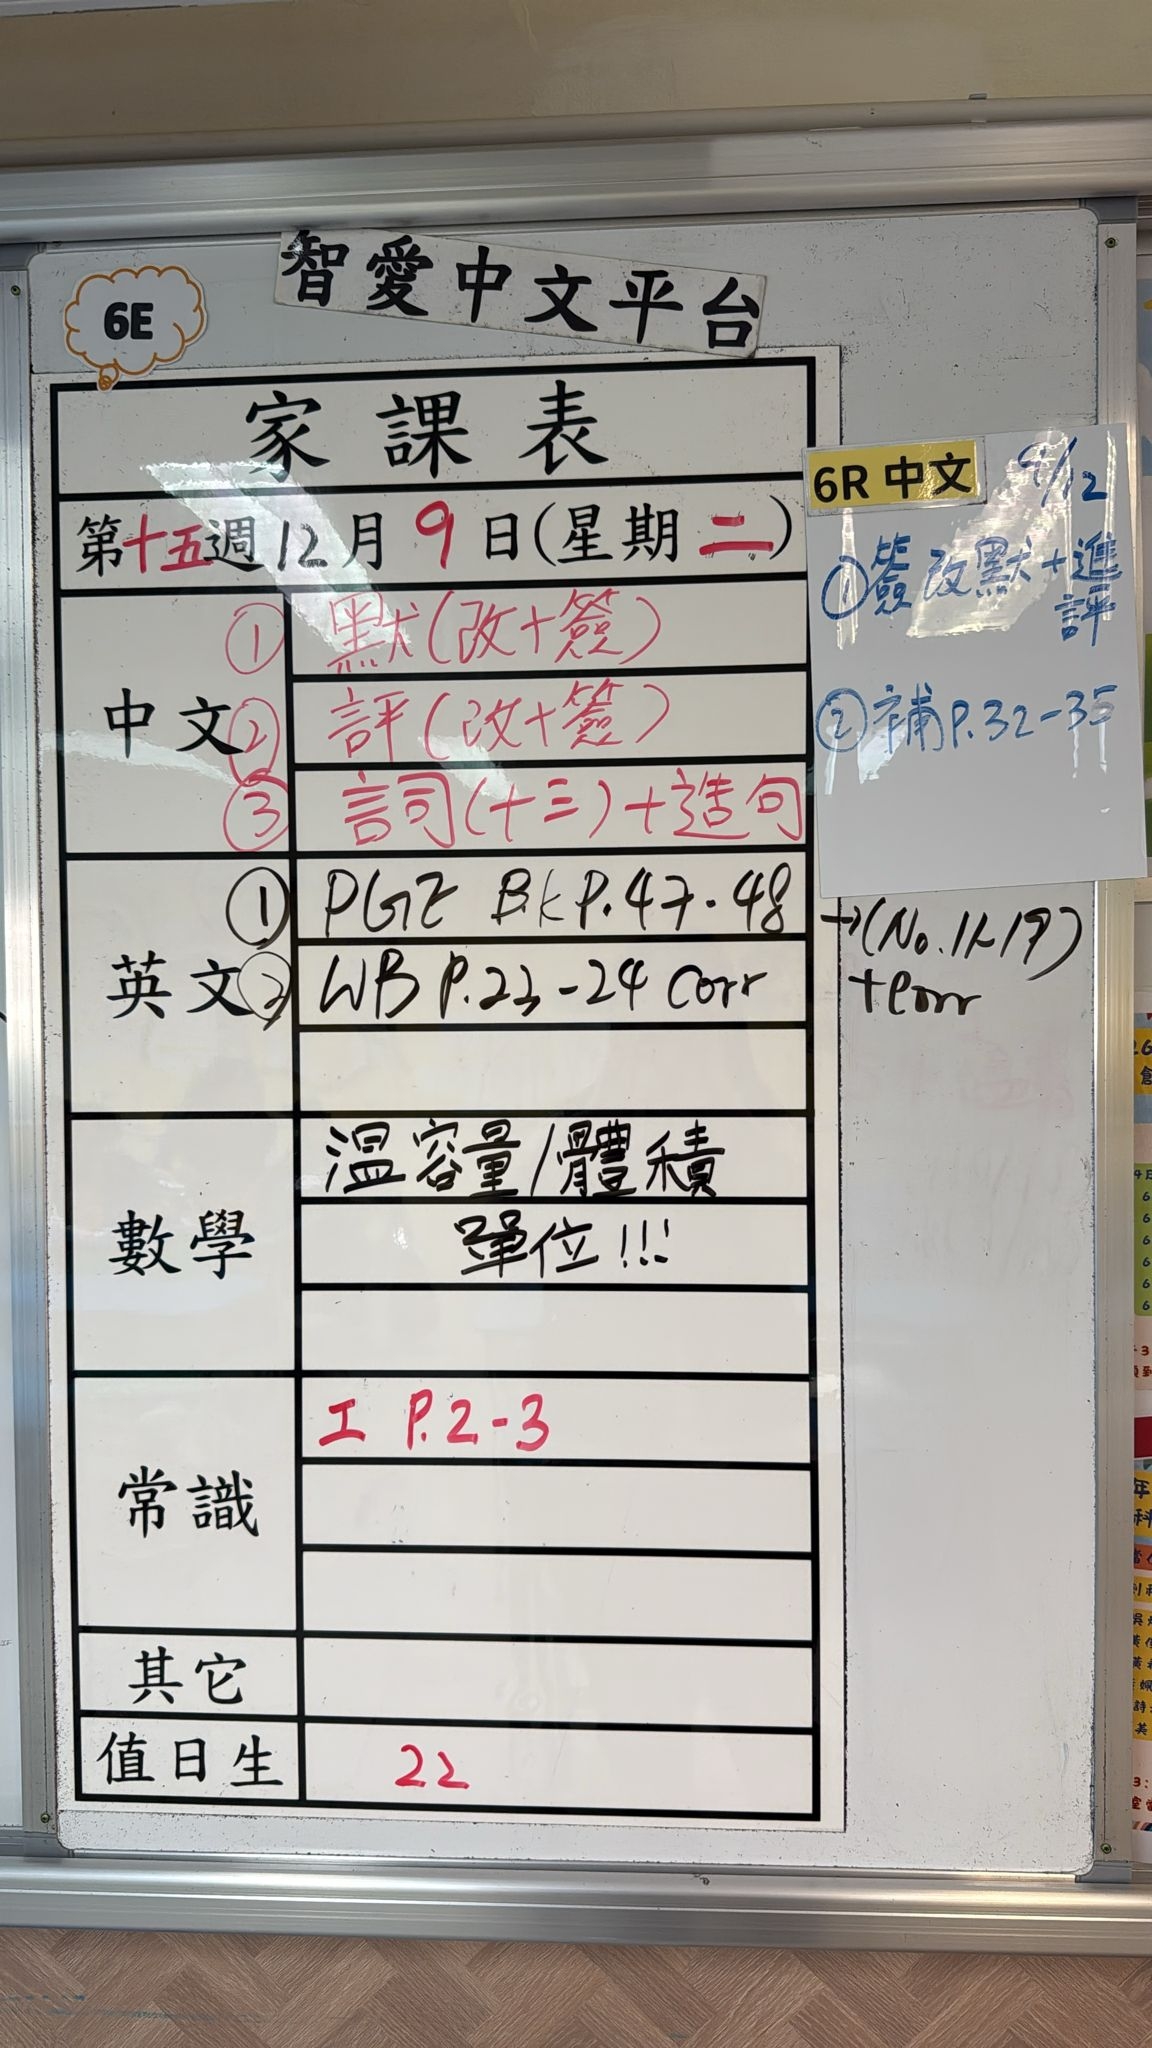 智愛中文平台
6E
家課表
第十五週12月9日(星期二)
中文
① 默(改+簽)
② 評(改+簽)
③ 詞(十三)+造句
英文
① PGE BK P.47-48 →(No.1-19)
+corr
② WB P.23-24 corr
數學
溫容量/體積
單位!!!
常識
工 P.2-3
其它
值日生
22
6R 中文 9/12
①簽改默+進
評
②補P.32-35